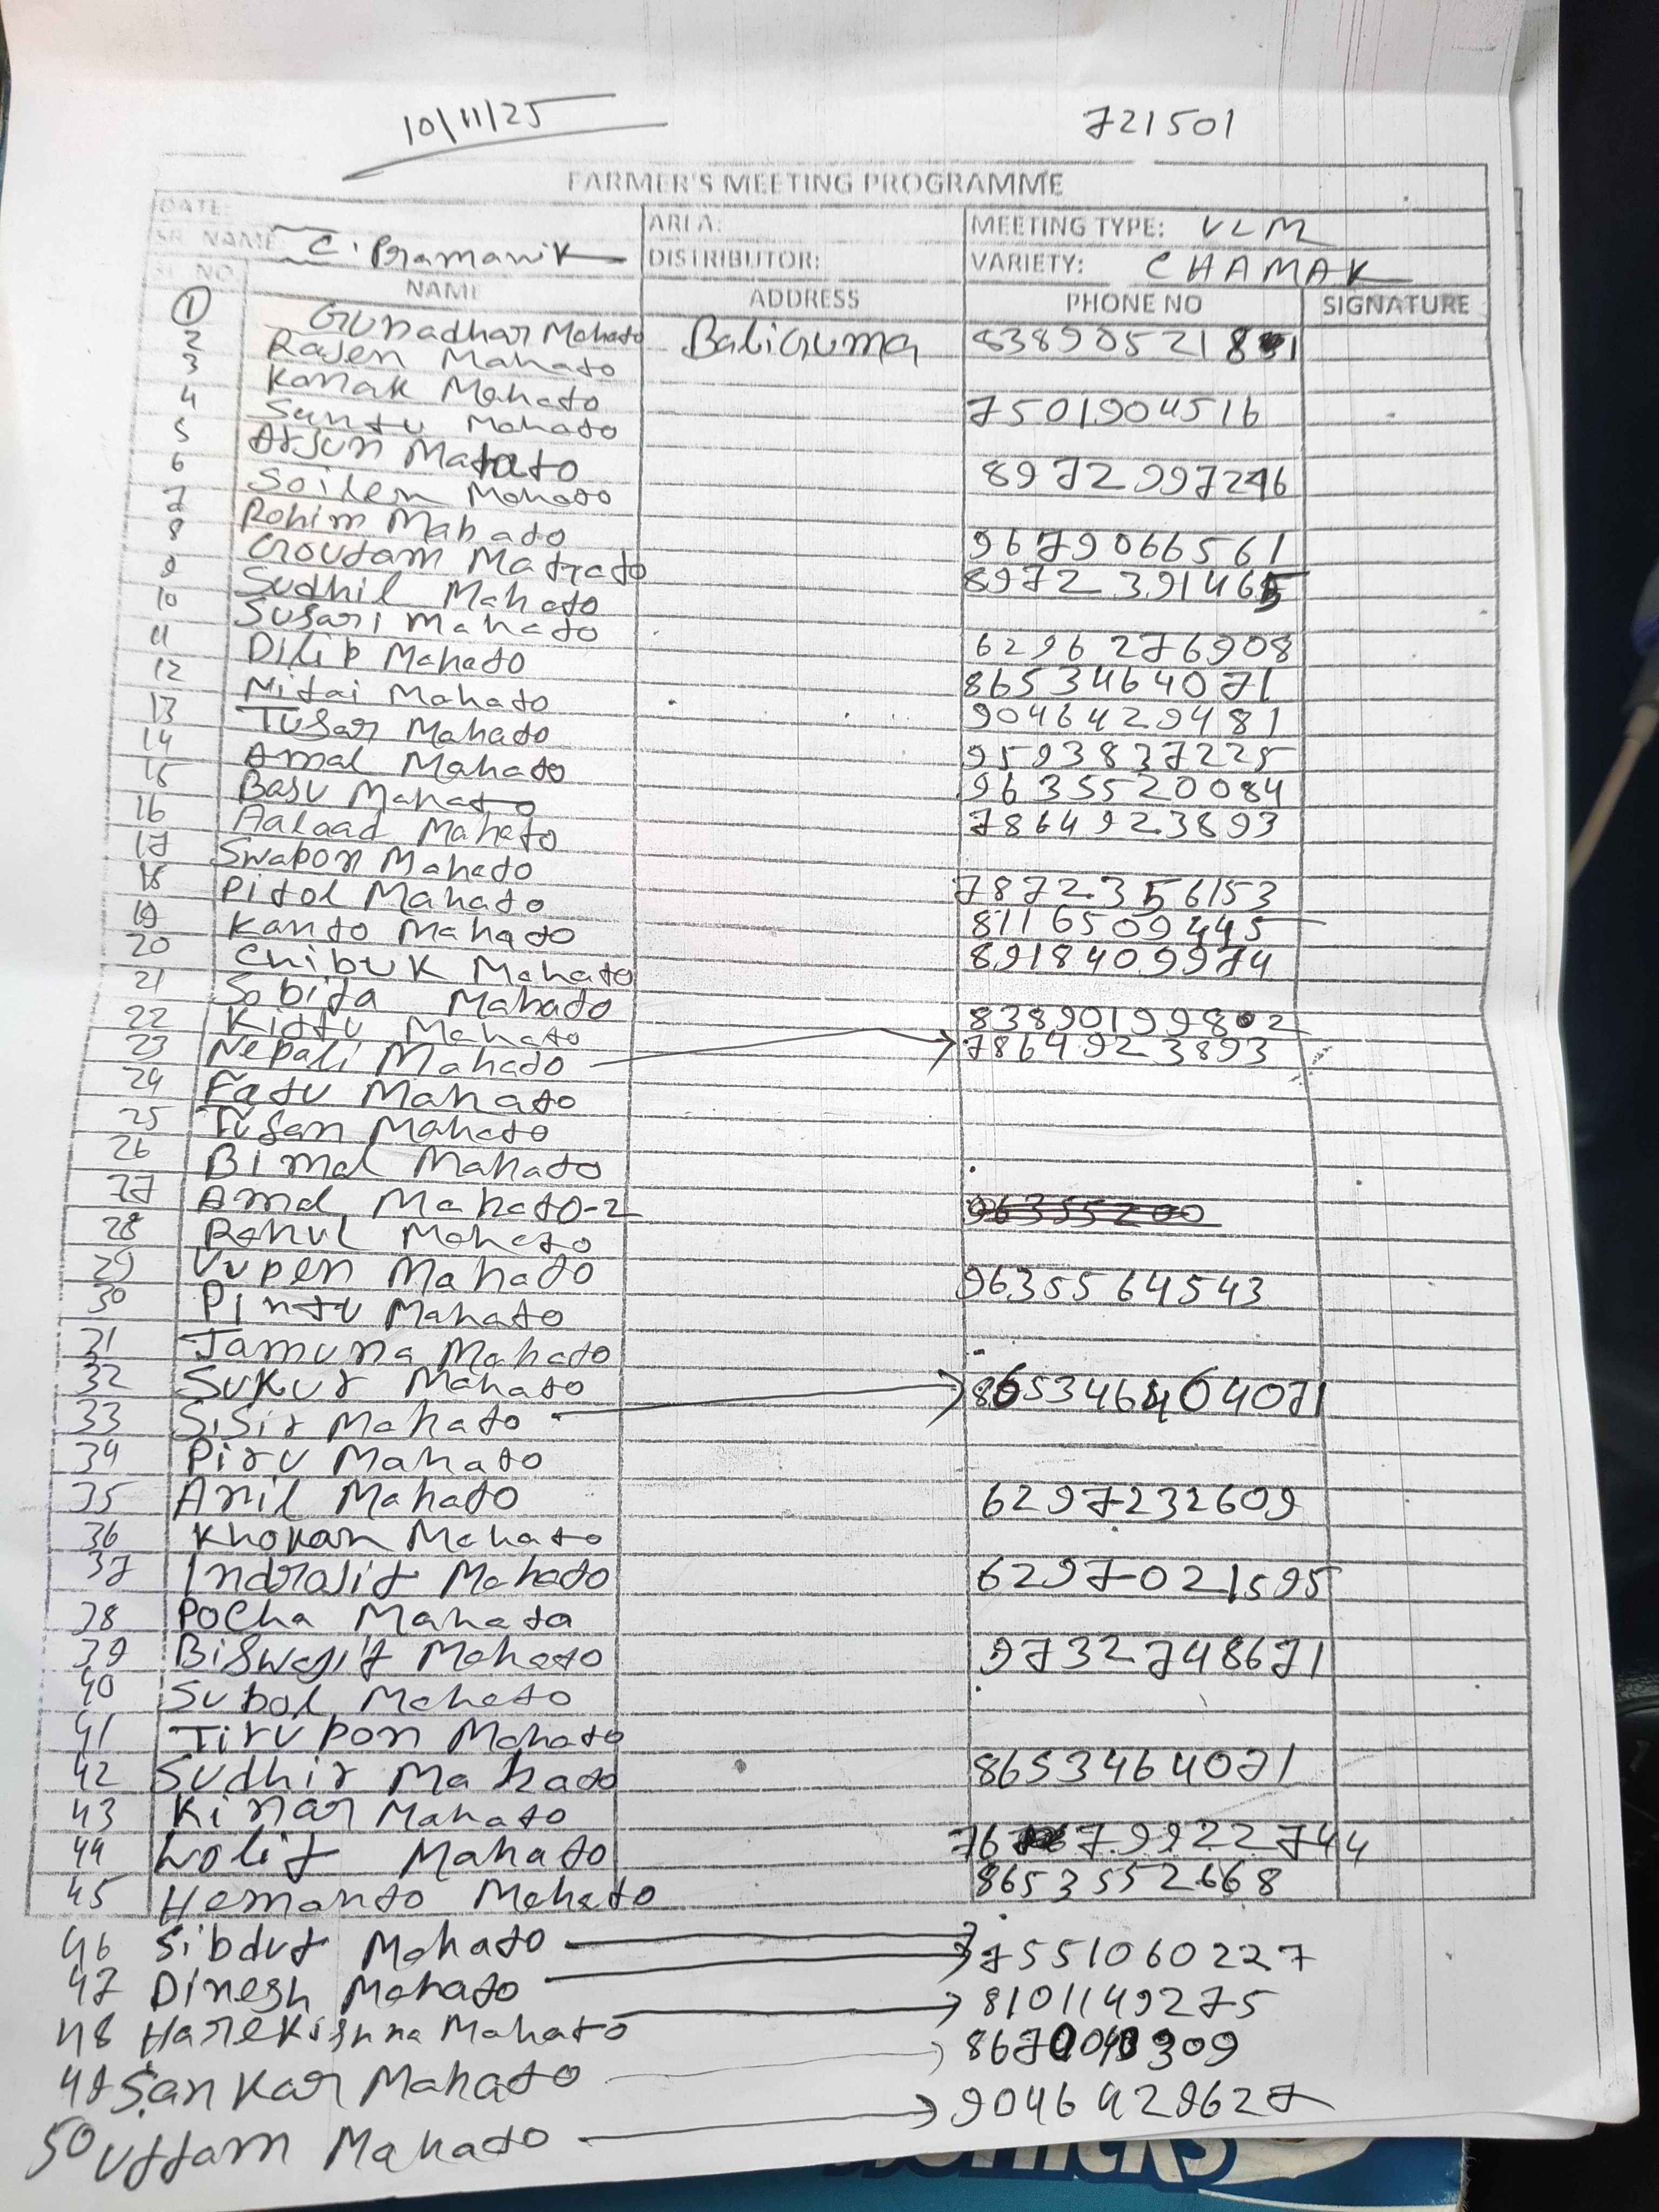 10/11/25 721501
FARMER'S MEETING PROGRAMME
DATE: AREA: MEETING TYPE: VLM
SR. NAME: C. Pramanik DISTRIBUTOR: VARIETY: CHAMAK
SL NO. NAME ADDRESS PHONE NO SIGNATURE
1 Gunadhar Mahato Baliguma
2 Rajen Mahato
3 Kanak Mahato 7501904516
4 Santu Mahato
5 Arjun Mahato
6 Soilen Mahato
7 Rohim Mahato 9679066561
8 Goutam Mahato 8972391465
9 Sudhil Mahato
10 Susari Mahato 6296276908
11 Dilip Mahato 8653464071
12 Nitai Mahato 9046429481
13 Tusar Mahato 9593837225
14 Amal Mahato 9635520084
15 Basu Mahato 7864923893
16 Mahato
17 Swapon Mahato 7872356153
18 Pitol Mahato 8116509445
19 Kanto Mahato 8918409974
20 Chibuk Mahato
21 Sobita Mahato 83890199802
22 Kittu Mahato
23 Nepali Mahato 7864923893
24 Fatu Mahato
25 Tusan Mahato
26 Bimal Mahato
27 Amal Mahato-2 963555200
28 Rahul Mahato
29 Vupen Mahato 9635564543
30 Pintu Mahato
31 Jamuna Mahato
32 Sukur Mahato
33 Sisir Mahato 8653464064071
34 Piru Mahato
35 Anil Mahato 6297232609
36 Khokan Mahato
37 Indrajit Mahato 6297021595
38 Pocha Mahata
39 Biswajit Mahato 9732748671
40 Subol Mahato
41 Tirupon Mahato
42 Sudhir Mahato 8653464071
43 Kinar Mahato
44 Lolit Mahato
45 Hemanto Mahato 8653552668
46 Sibdut Mahato
47 Dinesh Mahato 7551060227
48 Harekrishna Mahato 8101149275
49 Sankar Mahato
50 Uttam Mahato 9046429627